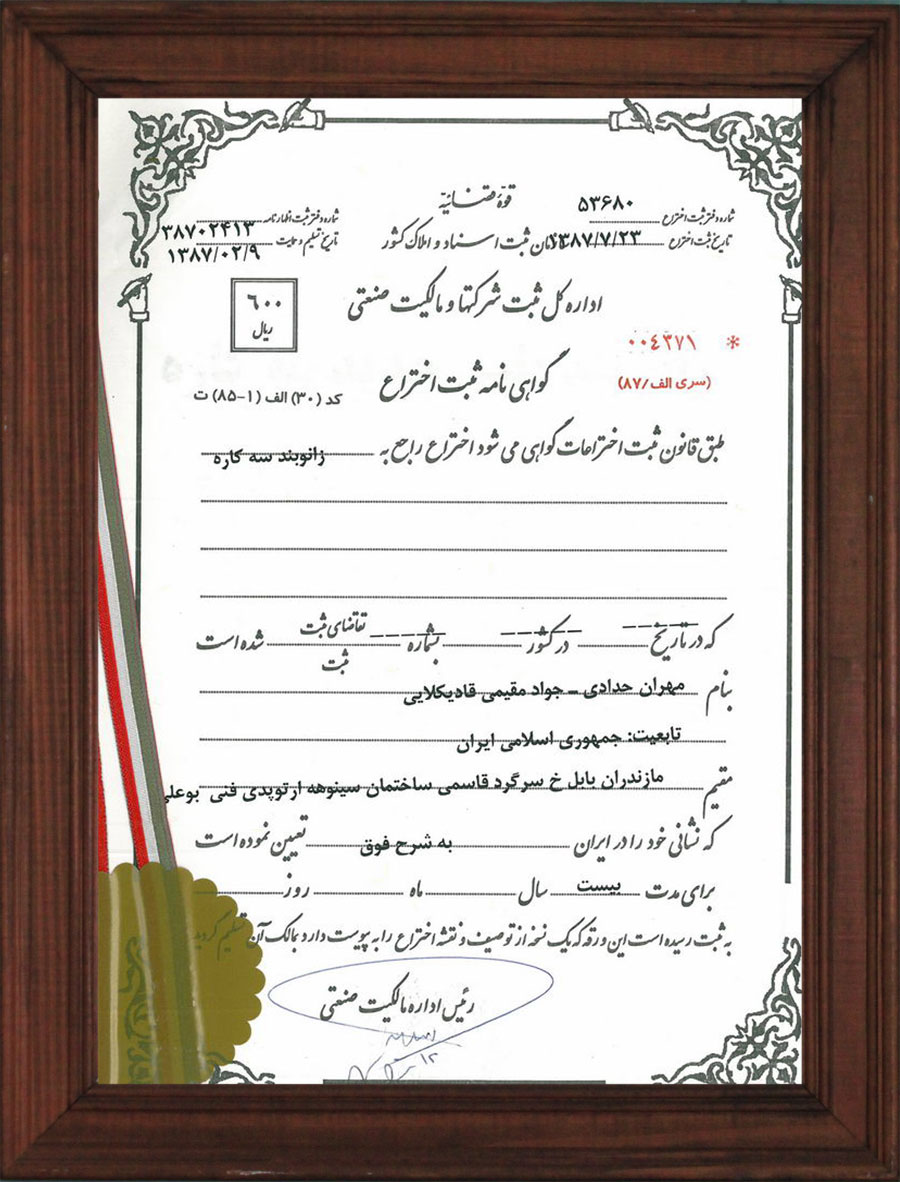 قوهٔ قضائیه
شماره دفتر ثبت اختراع ۵۳۶۸۰
شماره دفتر ثبت اظهارنامه ۳۸۷۰۲۴۱۳
تاریخ ثبت اختراع ۱۳۸۷/۷/۲۳
سازمان ثبت اسناد و املاک کشور
تاریخ تسلیم و ساعت ۱۳۸۷/۰۲/۹
اداره کل ثبت شرکتها و مالکیت صنعتی
۶۰۰
ریال
* ۰۰٤۳۷۱
(سری الف/۸۷)
گواهی نامه ثبت اختراع
کد (۳۰) الف (۱-۸۵) ت
طبق قانون ثبت اختراعات گواهی می شود اختراع راجع به زانوبند سه کاره
که در تاریخ ــــــ در کشور ــــــ بشماره ــــــ تقاضای ثبت
ثبت شده است
بنام مهران حدادی ـ جواد مقیمی قادیکلایی
تابعیت: جمهوری اسلامی ایران
مقیم مازندران بابل خ سرگرد قاسمی ساختمان سینوهه ارتوپدی فنی بوعلی
که نشانی خود را در ایران به شرح فوق تعیین نموده است
برای مدت بیست سال ماه روز
به ثبت رسیده است این ورقه که یک نسخه از توصیف و نقشه اختراع را به پیوست دارد بمالک آن تسلیم گردید
رئیس اداره مالکیت صنعتی